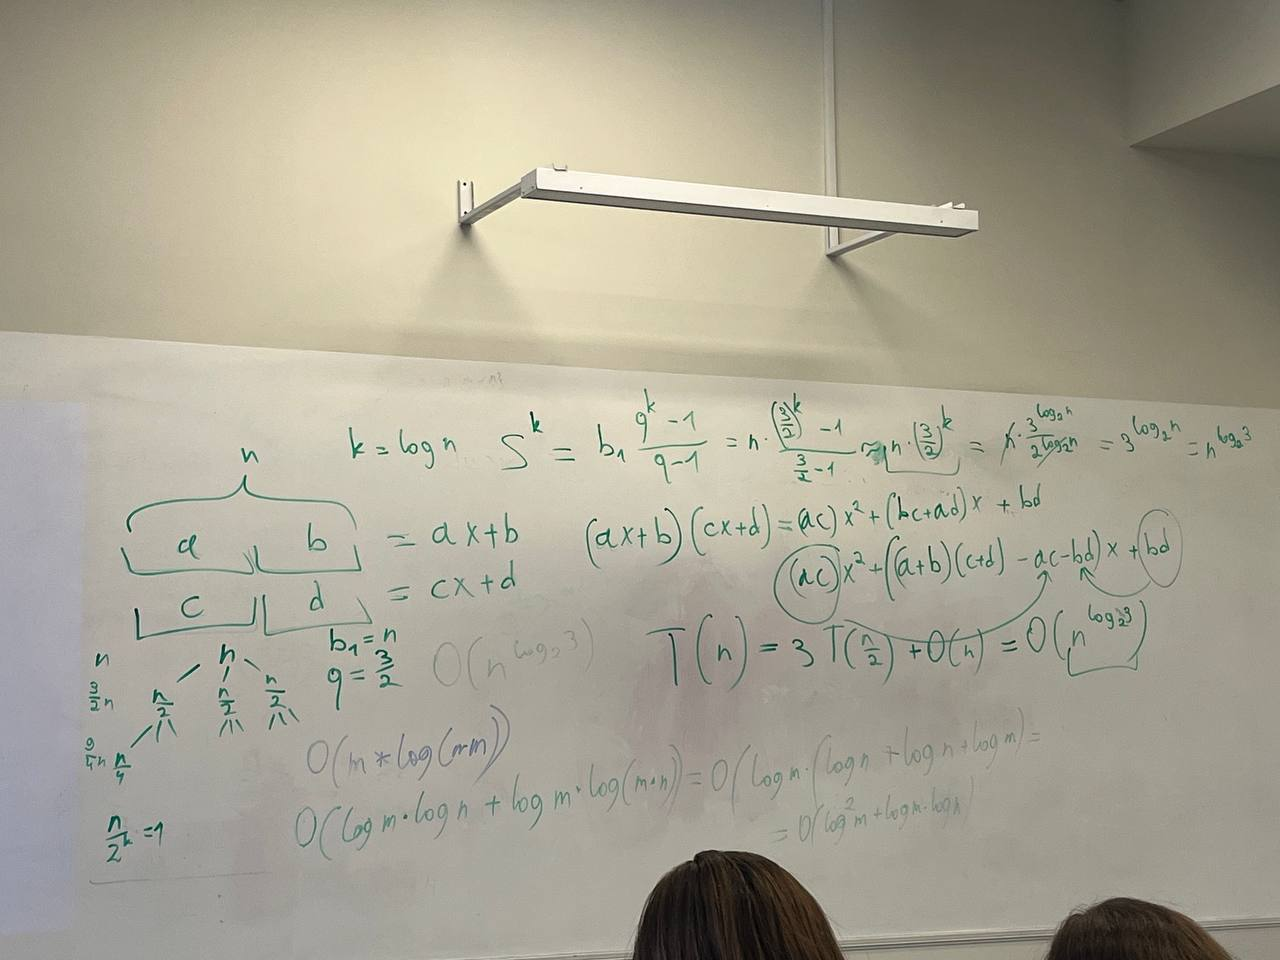 k = log n   S^k = b₁ (q^k - 1)/(q - 1) = n · ((3/2)^k - 1)/(3/2 - 1) ≈ n · (3/2)^k = n · 3^(log₂n)/2^(log₂n) = 3^(log₂n) = n^(log₂3)
n
a b = ax+b
(ax+b)(cx+d) = (ac)x² + (bc+ad)x + bd
c d = cx+d
(ac)x² + ((a+b)(c+d) - ac - bd)x + bd
b₁ = n
q = 3/2
O(n^(log₂3))
T(n) = 3T(n/2) + O(n) = O(n^(log₂3))
n n
3/2 n n/2 n/2 n/2
9/4 n n/4
n/2^k = 1
O(m * log(n·m))
O(log m · log n + log m · log(m·n)) = O(log m · (log n + log n + log m) =
= O(log² m + log m · log n)